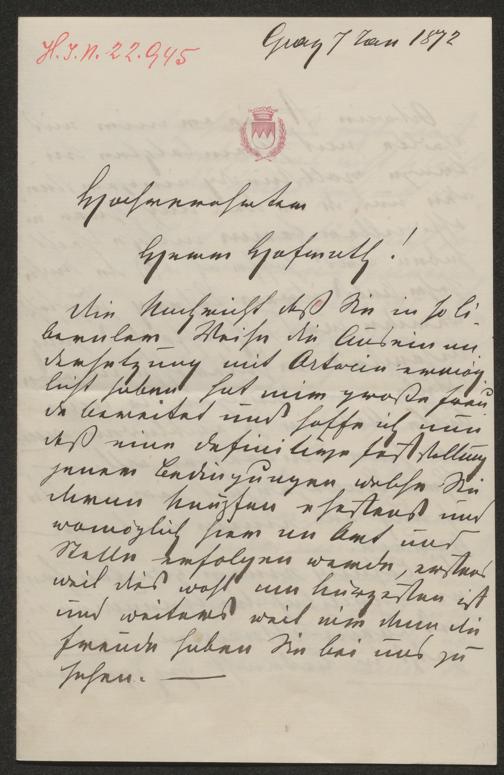 H.I.N. 22.945
Graz 7 Jan 1872
Hochverehrtester
Herr Hofrath!
Die Nachricht daß Sie in so li
beraler Weise die Auseinan
dersetzung mit Artaria ermög
licht haben hat mir große Freu
de bereitet und hoffe ich nun
daß eine definitive Feststellung
jener Bedingungen welche Sie
daran knüpfen ehestens und
womöglich hier an Ort und
Stelle erfolgen werde, erstens
weil dies wohl am kürzesten ist
und weiters weil wir dann die
Freude haben Sie bei uns zu
sehen. —